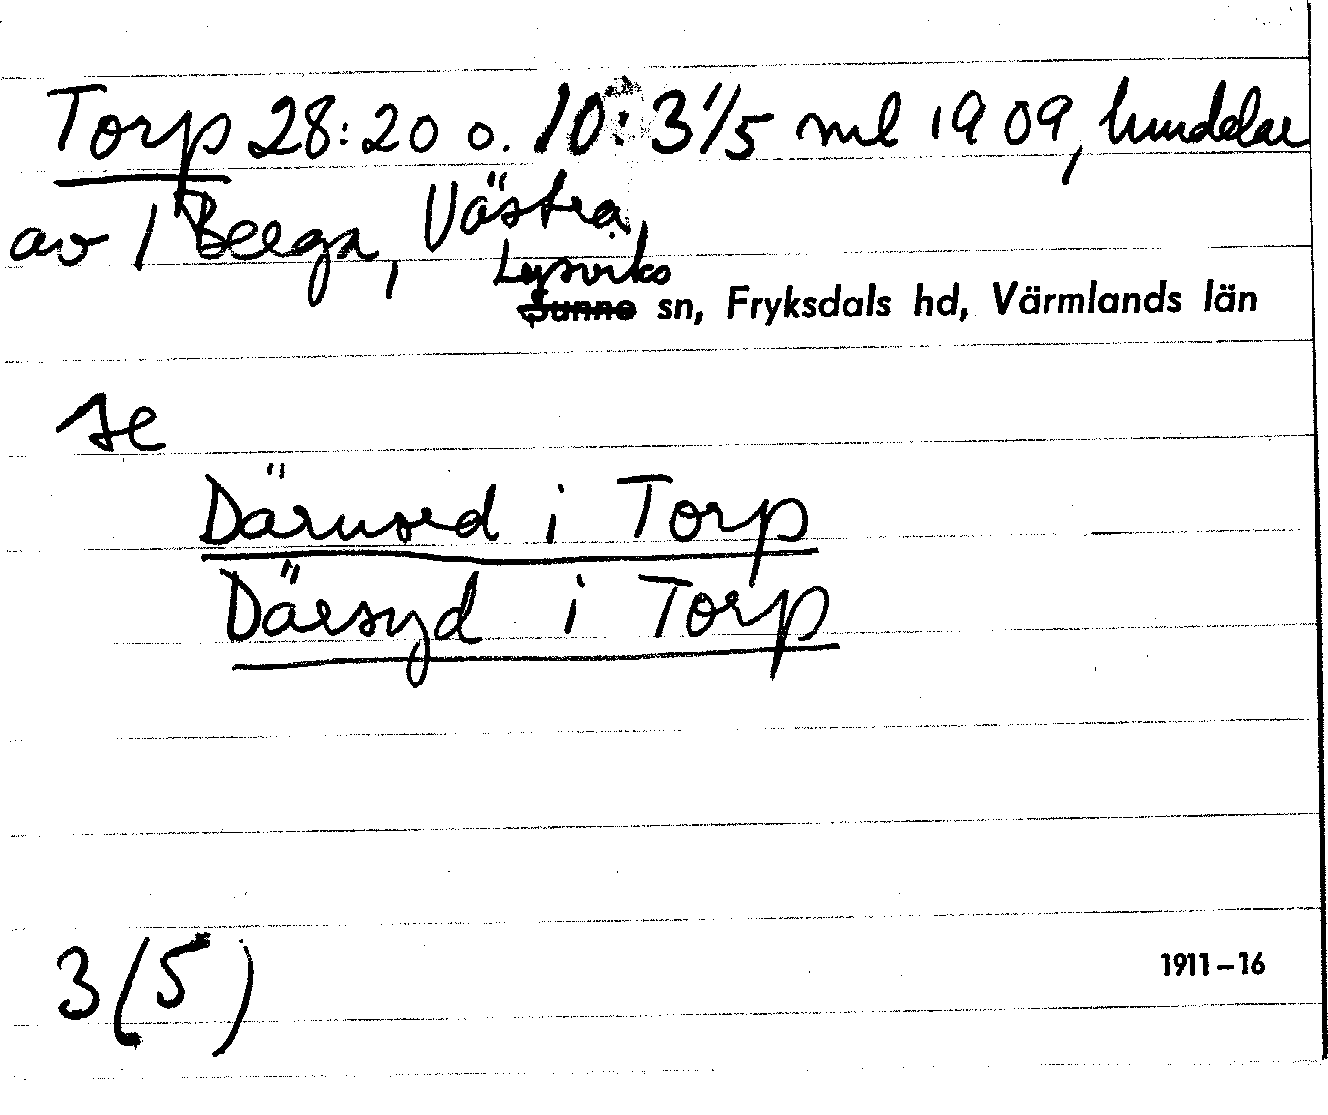 Torp 28:20 o. 10:3 1/5 ml 1909, hmdelar
av 1 Berga, Västra,
Lysviks
Sunne sn, Fryksdals hd, Värmlands län
se
Därnord i Torp
Därsyd i Torp
3(5)
1911-16